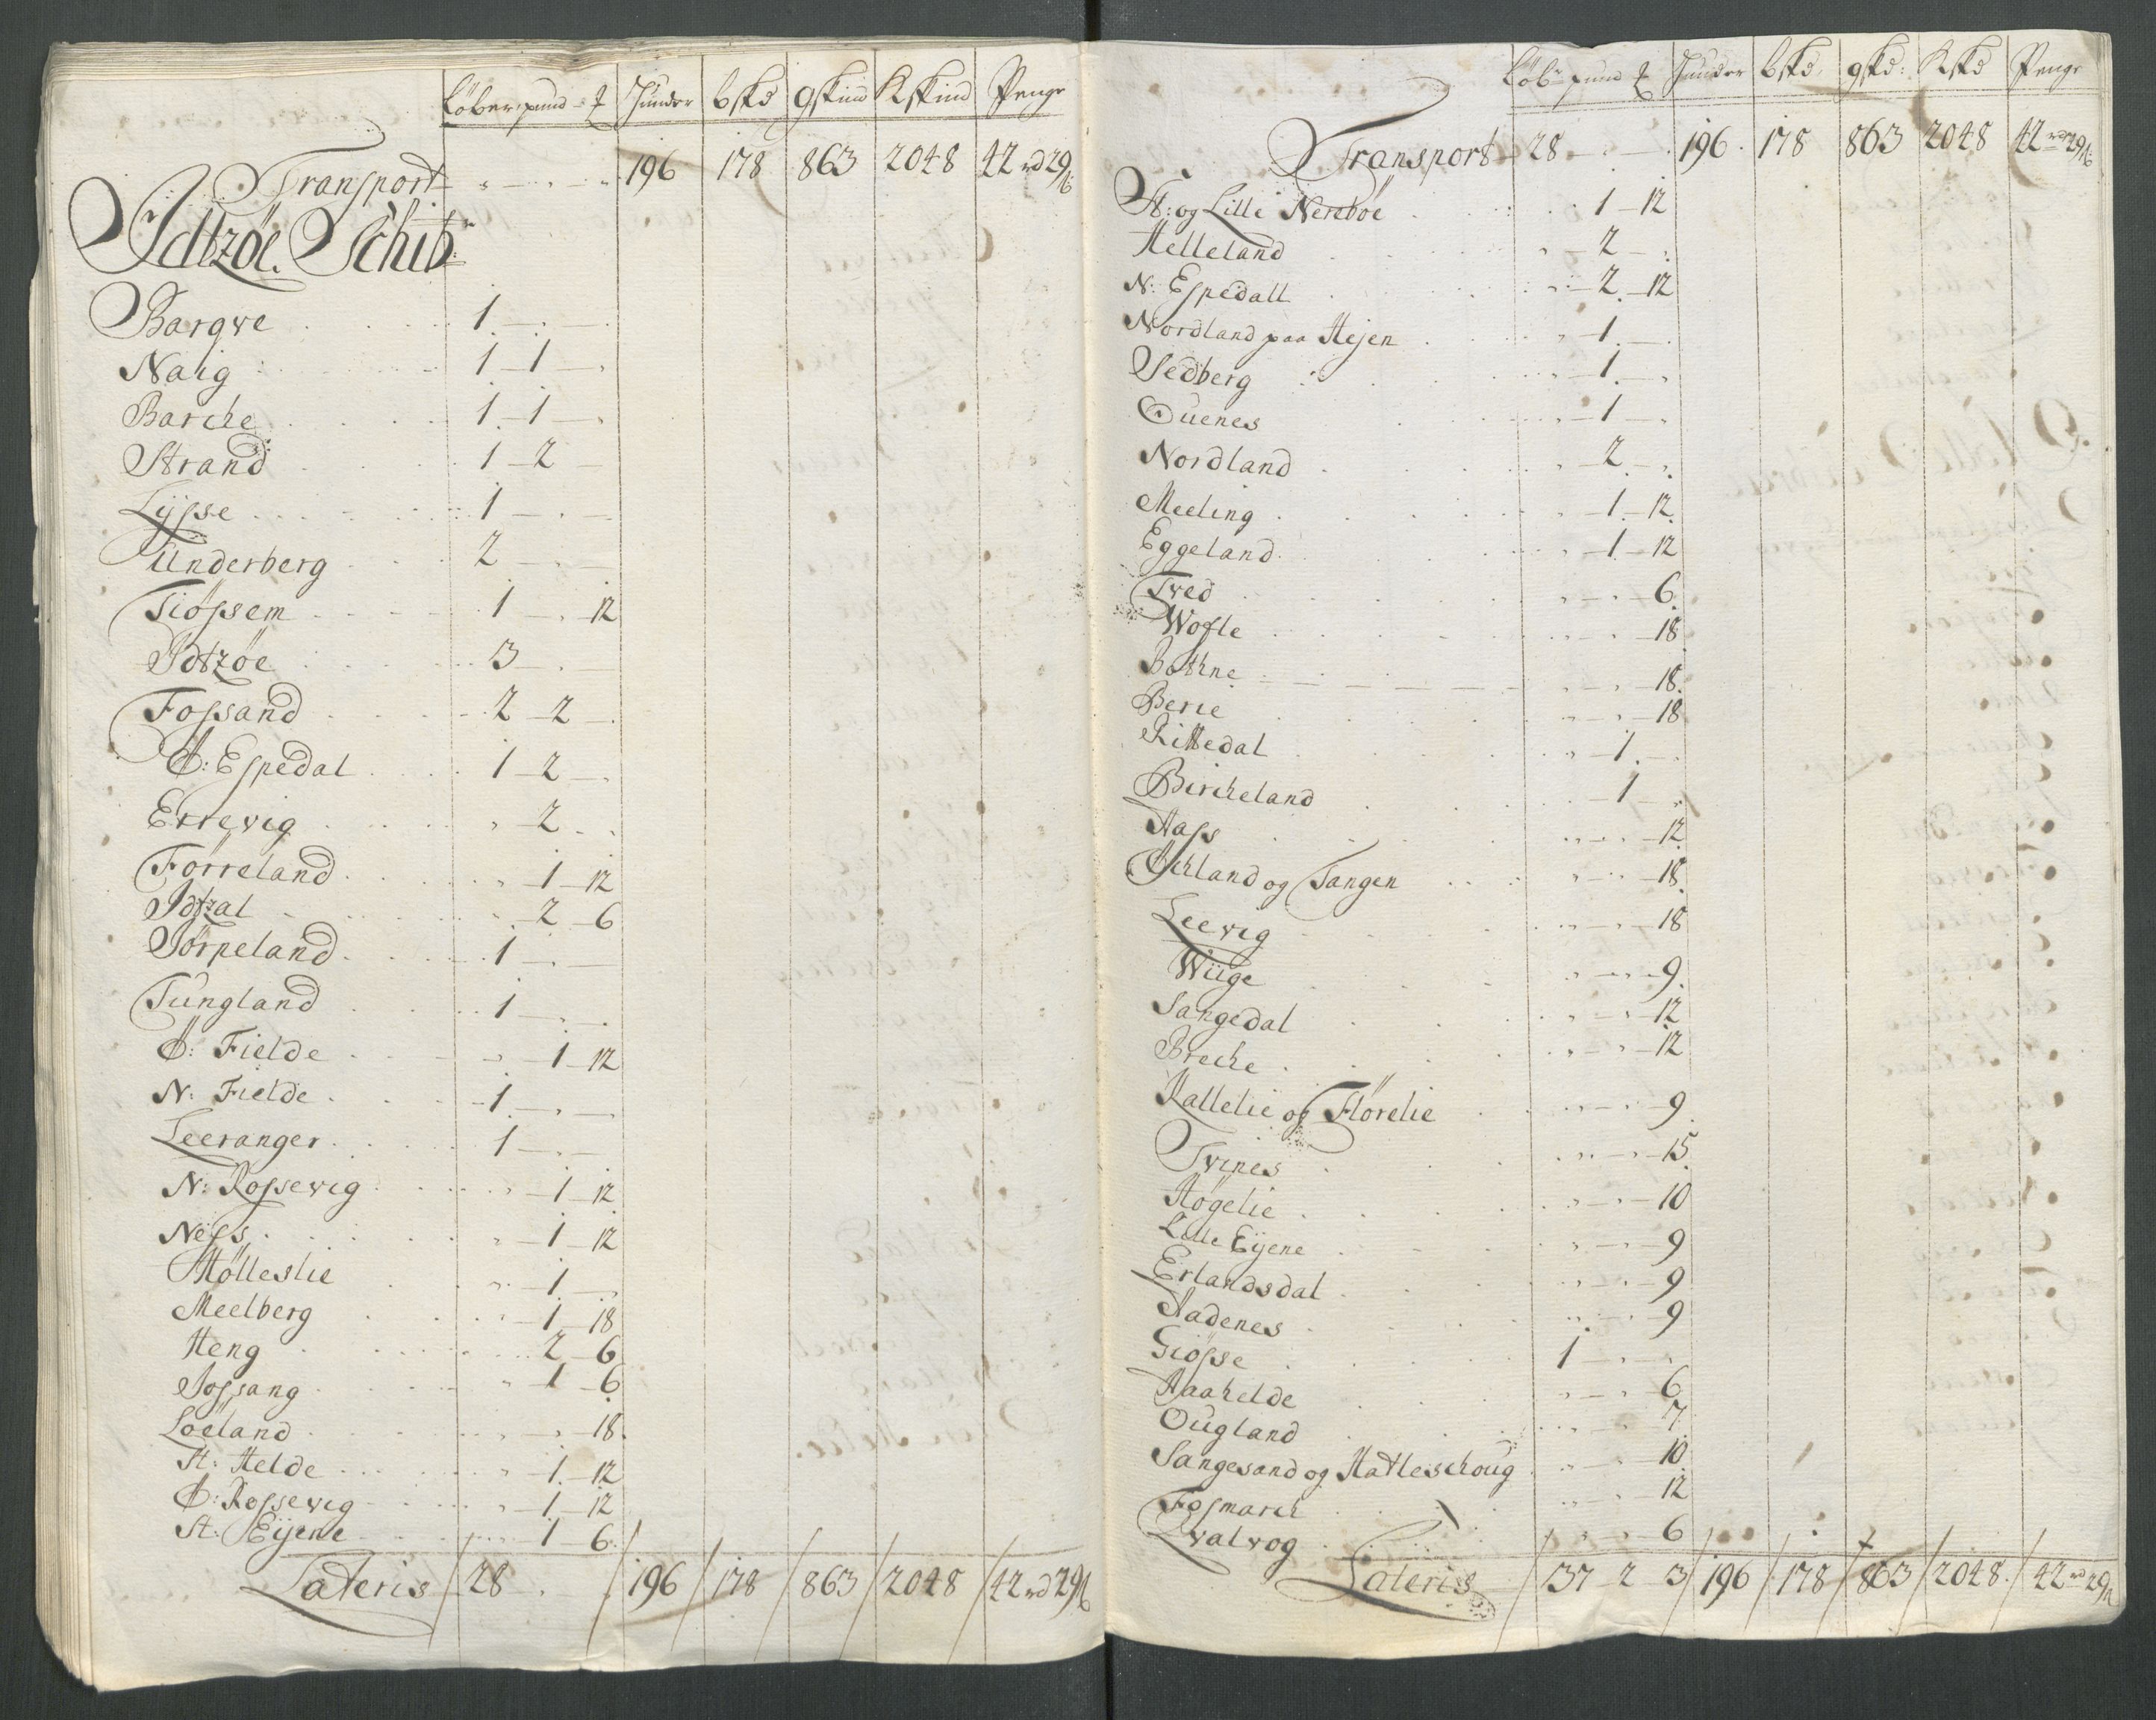 Løber pund ℔ Hunder bskd gskind Kskind Penge
Transport 196 178 863 2048 42 rd 29
Idtzøe Schib
Bargve 1
Naig 1 1
Barche 1 1
Strand 1 2
Lysse 1
Underberg 2
Tiøssem 1 12
Idtzøe 3
Fossand 2 2
Ø: Espedal 1 2
Errevig 2
Førreland 1 12
Idtzal 2 6
Jørpeland 1
Tungland 1
Ø: Fielde 1 12
N: Fielde 1
Leeranger 1
N: Rossevig 1 12
Ness 1 12
Hølleslie 1
Meelberg 1 18
Heng 2 6
Jossang 1 6
Løeland 18
St: Helde 1 12
Ø: Rossevig 1 12
St: Eijene 1 6
Lateris 28 196 178 863 2048 42 rd 29
Løb pund ℔ Hunder bskd gskd: Kskd Penge
Transport 28 196 178 863 2048 42 rd 29
St: og Lille Nerebøe 1 12
Helleland 2
N: Espedall 2 12
Nordland paa Hejen 1
Sedberg 1
Quenes 1
Nordland 2
Meeling 1 12
Eggeland 1 12
Tved 6
Wofle 18
Bothne 18
Berie 18
Rittedal 1
Bircheland 1
Aass 12
Øchland og Tangen 18
Leevig 18
Wiige 9
Sangedal 12
Breche 12
Kallelie og Flørelie 9
Tvines 15
Høgelie 10
Lille Eijene 9
Erlandsdal 9
Aadenes 9
Giøsse 1
Haahelde 6
Ougland 7
Sangesand og Hatleschoug 10
Fosmarch 12
Qvalvog 6
Lateris 37 2 3 196 178 863 2048 42 rd 29